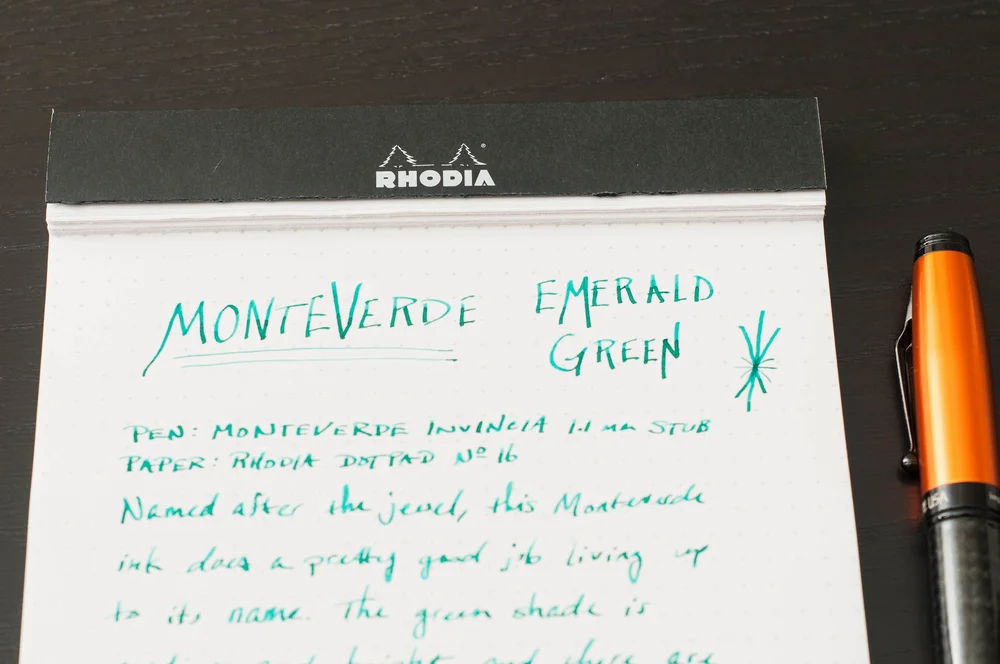 RHODIA
MONTEVERDE
EMERALD
GREEN
PEN: MONTEVERDE INVINCIA 1.1 mm STUB
PAPER: RHODIA DOTPAD Nº 16
Named after the jewel, this Monteverde
ink does a pretty good job living up
to its name. The green shade is
and bright and there are
USA